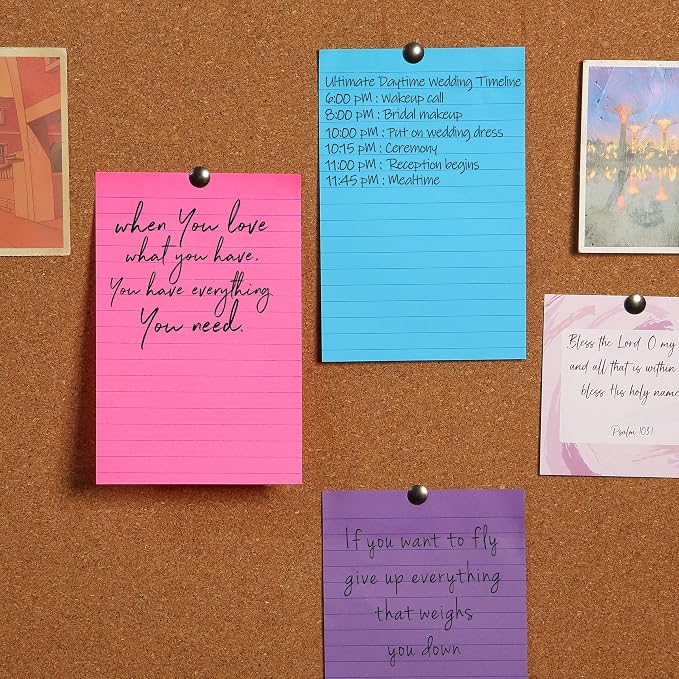 when You love
what you have.
You have everything
You need.
Ultimate Daytime Wedding Timeline
6:00 PM : Wakeup call
8:00 PM : Bridal makeup
10:00 PM : Put on wedding dress
10:15 PM : Ceremony
11:00 PM : Reception begins
11:45 PM : Mealtime
Bless the Lord O my
and all that is within
bless His holy name
Psalm 103:1
If you want to fly
give up everything
that weighs
you down